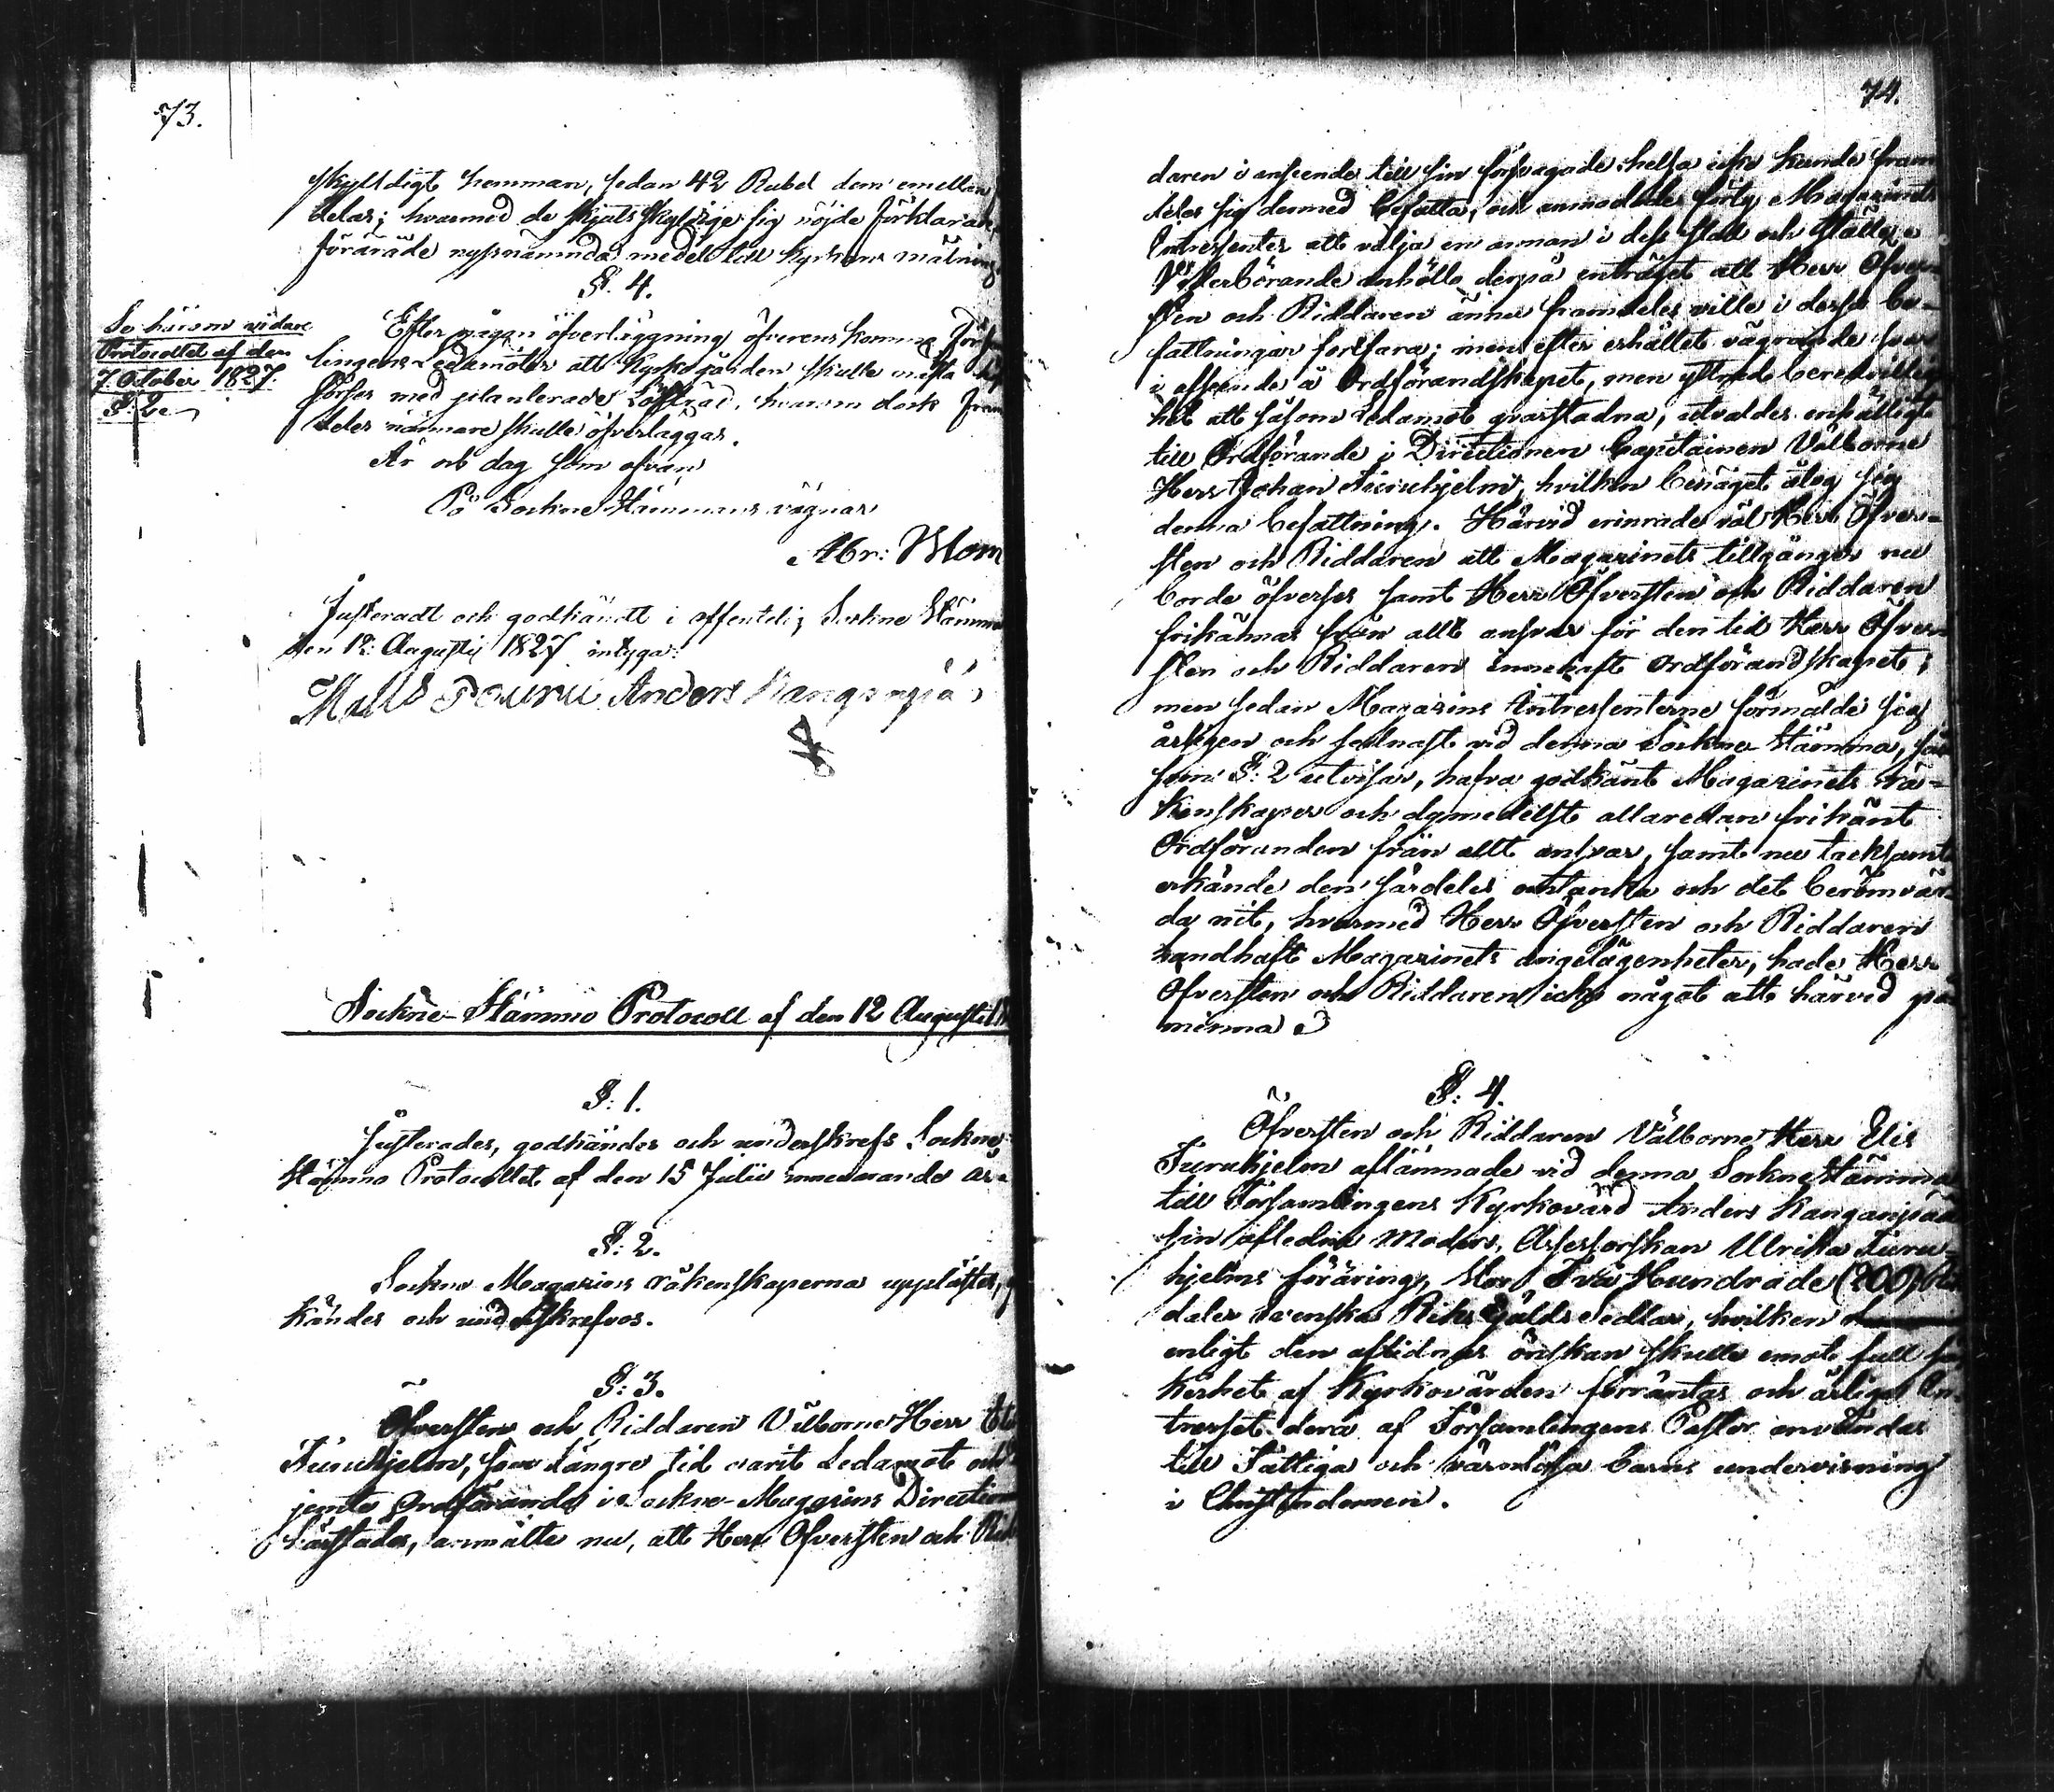 73.
skyldigt hemman, sedan 42 Rubel dem emellan
delas; hvarmed de skjutsskyldige sig nöjde förklarade,
förärade nyssnämnda medel till kyrkans målning.
§. 4.
Se härom vidare
Protocollet af den
7 October 1827.
§. 2.
Efter någon öfverläggning öfverens kommo Försam
lingens Ledamöter att Kyrkogården skulle nästa
förses med planterade Löfträd, hvarom dock fram
deles närmare skulle öfverläggas.
År och dag som ofvan
På Sockne Stämmans vägnar
Abr: Blom
Justeradt och godkändt i offentelig Sockne Stämma
den 12 Augusti 1827 intyga:
Matts Pouru Anders Kanganpää
Sockne-Stämmo Protocoll af den 12 Augusti 18
§: 1.
Justerades, godkändes och underskrefs Sockne
Stämmo Protocollet af den 15 Julii innevarande år.
§: 2.
Sockne Magazins räkenskaperna upplästes, g
kändes och underskrefvos.
§: 3.
Öfversten och Riddaren Välborne Herr Elis
Furuhjelm, som längre tid varit Ledamot och
jemte Ordförande i Sockne-Magazins Direction
härstädes, anmälte nu, att Herr Öfversten och Rid
74.
daren i anseende till sin försvagade helsa icke kunde fram
deles sig dermed befatta, och anmodade förty Magazinets
Intressenter att välja en annan i dess stad och ställe.
Vederbörande anhöllo derpå enträget att Herr Öfver-
sten och Riddaren ännu framdeles ville i dersse be-
fattningar fortfara; men efter erhållet vägrande svar
i afseende å Ordförandskapet, men yttrad beredvillig
het att såsom Ledamot qvarstadna, utvaldes enhälligt
till Ordförande i Directionen Capitainen Välborne
Herr Johan Furuhjelm, hvilken benäget åtog sig
denna befattning. Härvid erinrade väl Herr Öfver-
sten och Riddaren att Magazinets tillgångar nu
borde öfverses samt Herr Öfversten och Riddaren
frikännas från allt ansvar för den tid Herr Öfver-
sten och Riddaren innehaft Ordförandskapet;
men sedan Magazins Intressenterne förmälde sig
årligen och sednast vid denna Sockne Stämma, så
som §: 2 utvisar, hafva godkänt Magazinets Rä-
kenskaper och dymedelst allaredan frikänt
Ordföranden från allt ansvar, samt nu tacksamt
erkände den särdeles omtanka och det berömvär
da nit, hvarmed Herr Öfversten och Riddaren
handhaft Magazinets angelägenheter, hade Herr
Öfversten och Riddaren icke något att härvid på
minna
§: 4.
Öfversten och Riddaren Välborne Herr Elis
Furuhjelm aflämnade vid denna Sockne Stämma
till Församlingens Kyrkovärd Anders Kanganpää
sin afledna Moders, Assessorskan Ulrika Furu-
hjelms föräring, stor Två Hundrade (200) Rik
daler Svenska Riks Gälds Sedlar, hvilken
enligt den aflidnas önskan skulle emot full sä
kerhet af Kyrkovärden förräntas och årliga In
tresset dera af Församlingens Pastor användas
till Fattiga och värnlösa barns undervisning
i Christendomen.